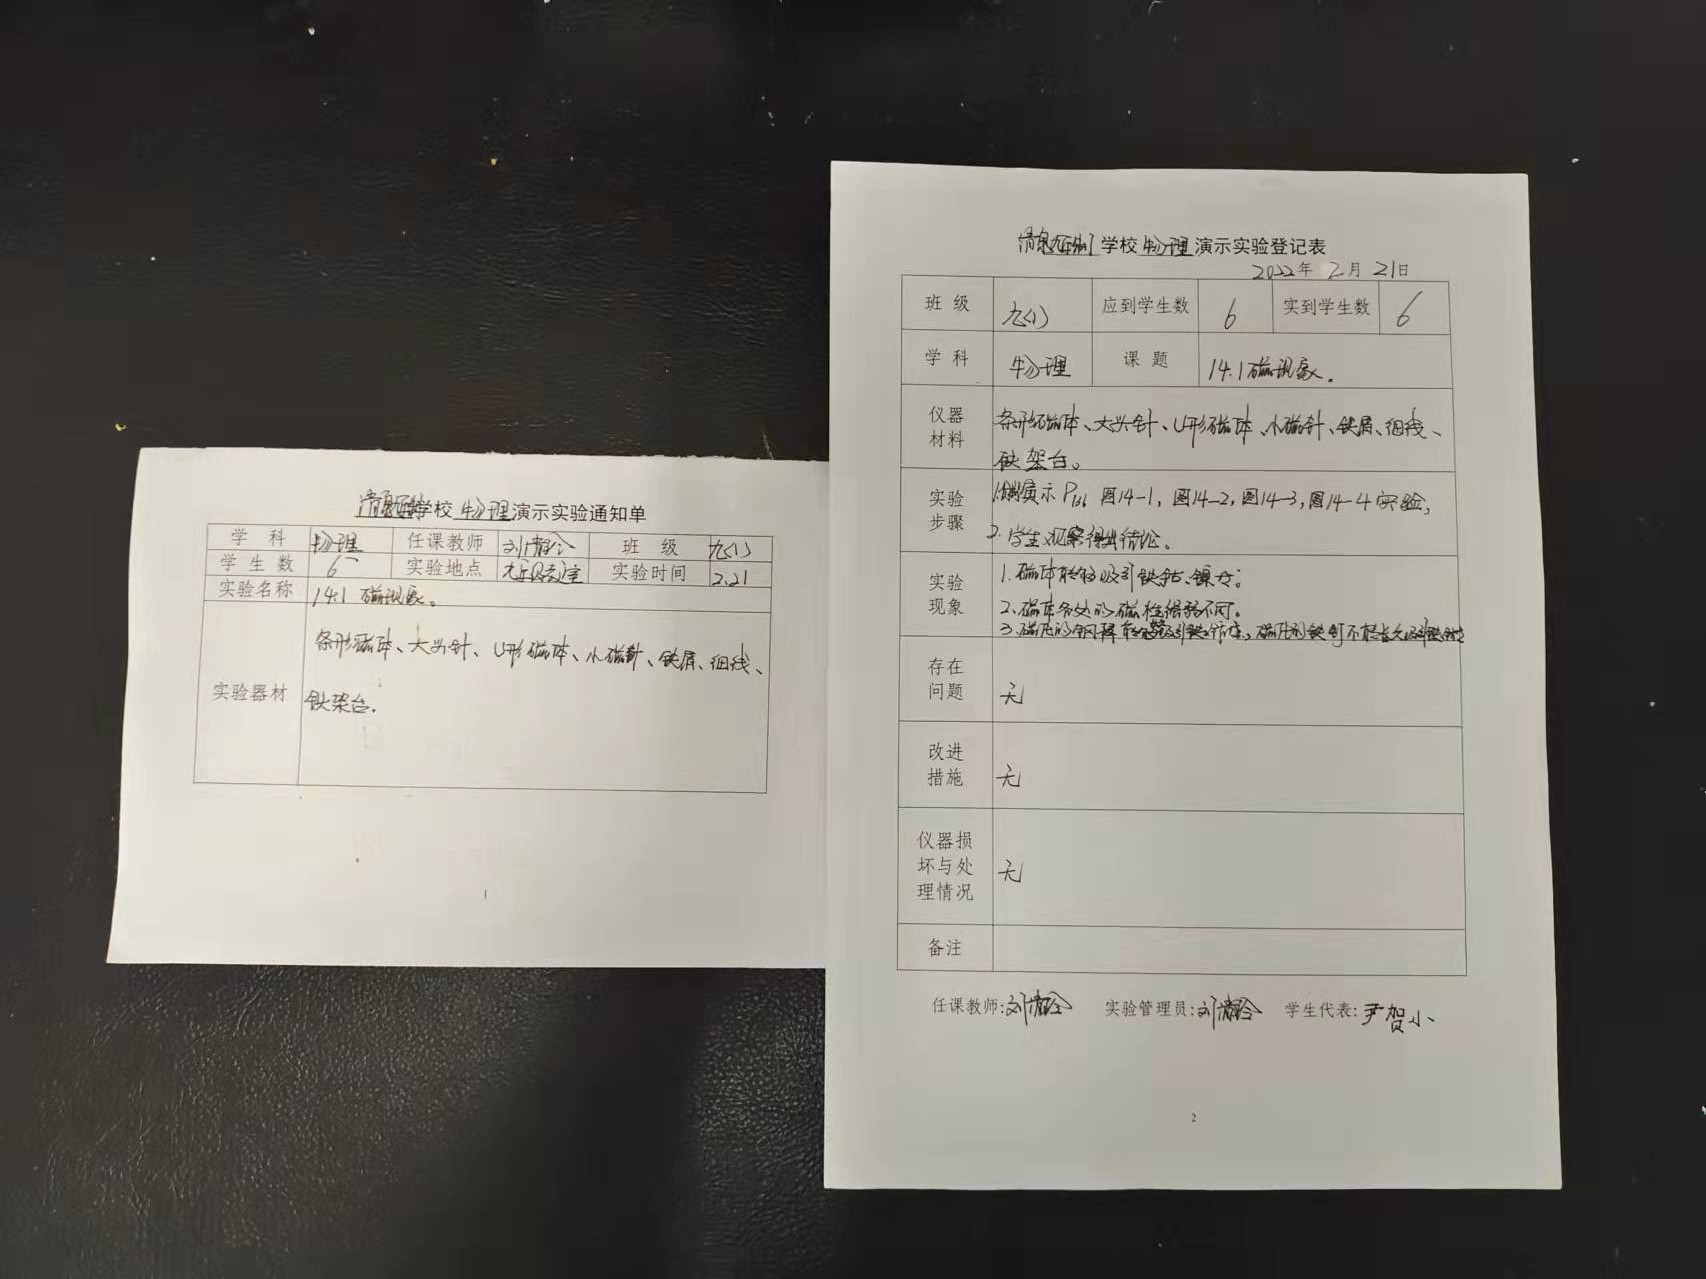 学校物理演示实验通知单
学 科 物理 任课教师 班 级 九(1)
学生数 6 实验地点 九年级教室 实验时间 2.21
实验名称 14.1 磁现象。
实验器材 条形磁体、大头针、U形磁体、小磁针、铁屑、细线、
铁架台.
1
学校物理演示实验登记表
2022年 2月 21日
班 级 九(1) 应到学生数 6 实到学生数 6
学 科 物理 课 题 14.1磁现象.
仪器材料 条形磁体、大头针、U形磁体、小磁针、铁屑、细线、
铁架台。
实验步骤 演示 图14-1, 图14-2, 图14-3, 图14-4 实验,
2. 学生观察得出结论。
实验现象 1. 磁体能够吸引铁、钴、镍
2. 磁体各处的磁性强弱不同。
3.
存在问题 无
改进措施 无
仪器损坏与处理情况 无
备注
任课教师: 实验管理员: 学生代表: 尹贺小
2